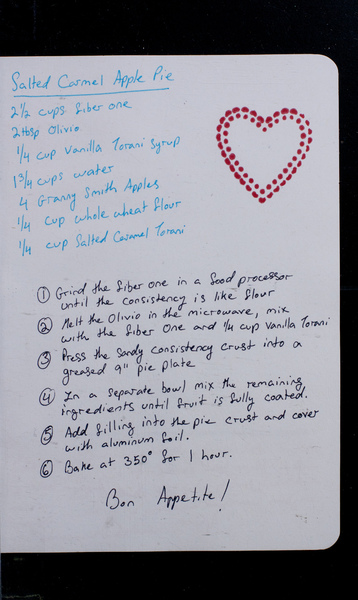 Salted Carmel Apple Pie
2 1/2 cups fiber one
2 tbsp Olivio
1/4 cup Vanilla Torani Syrup
1 3/4 cups water
4 Granny Smith Apples
1/4 cup whole wheat flour
1/4 cup Salted Caramel Torani
① Grind the fiber one in a food processor
until the consistency is like flour
② Melt the Olivio in the microwave, mix
with the fiber One and 1/4 cup Vanilla Torani
③ Press the Sandy consistency crust into a
greased 9" pie plate
④ In a separate bowl mix the remaining
ingredients until fruit is fully coated.
⑤ Add filling into the pie crust and cover
with aluminum foil.
⑥ Bake at 350° for 1 hour.
Bon Appetite!